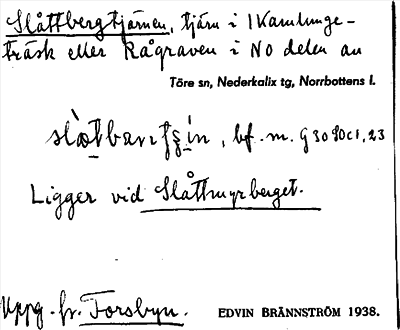 Slåttbergtjärnen, tjärn i Kamlunge-
träsk eller Rågraven i NO delen av
Töre sn, Nederkalix tg, Norrbottens l.
bf. m. G 30
Ligger vid Slåttmyrberget.
Uppg. fr. Forsbyn. EDVIN BRÄNNSTRÖM 1938.